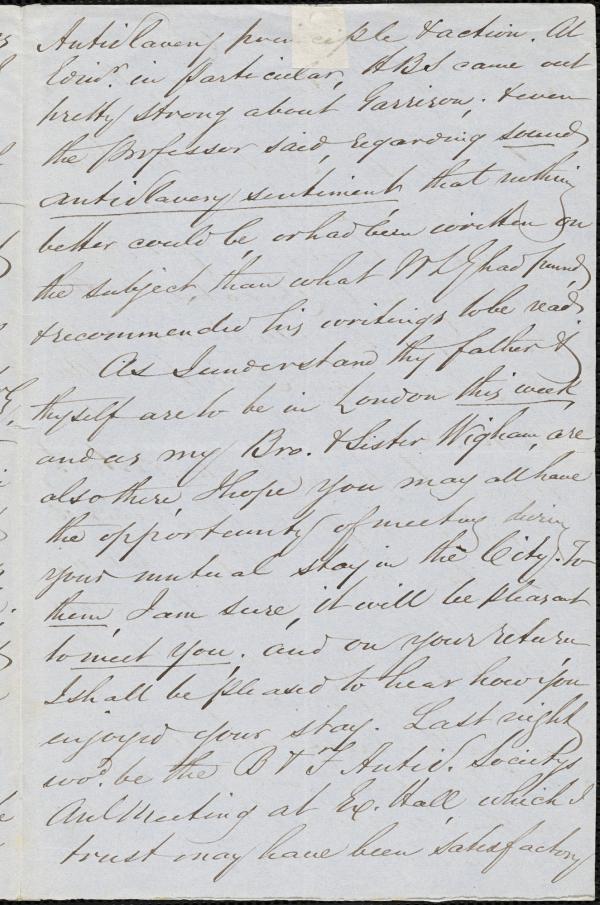 Antislavery principle & action. At
Edinr. in particular, HBS came out
pretty strong about Garrison; & even
the Professor said, regarding sound
antislavery sentiment, that nothing
better could be, or had been written on
the subject, than what WLG had penned,
& recommended his writings to be read.
As I understand thy father &
thyself are to be in London this week,
and as my Bro. & Sister Wigham, are
also there, I hope you may all have
the opportunity of meeting during
your mutual stay in the City. To
them, I am sure, it will be pleasant
to meet you; and on your return
I shall be pleased to hear how you
enjoyed your stay. Last night
wod. be the B & F Antis. Society's
Anl Meeting at Ex. Hall, which I
trust may have been satisfactory